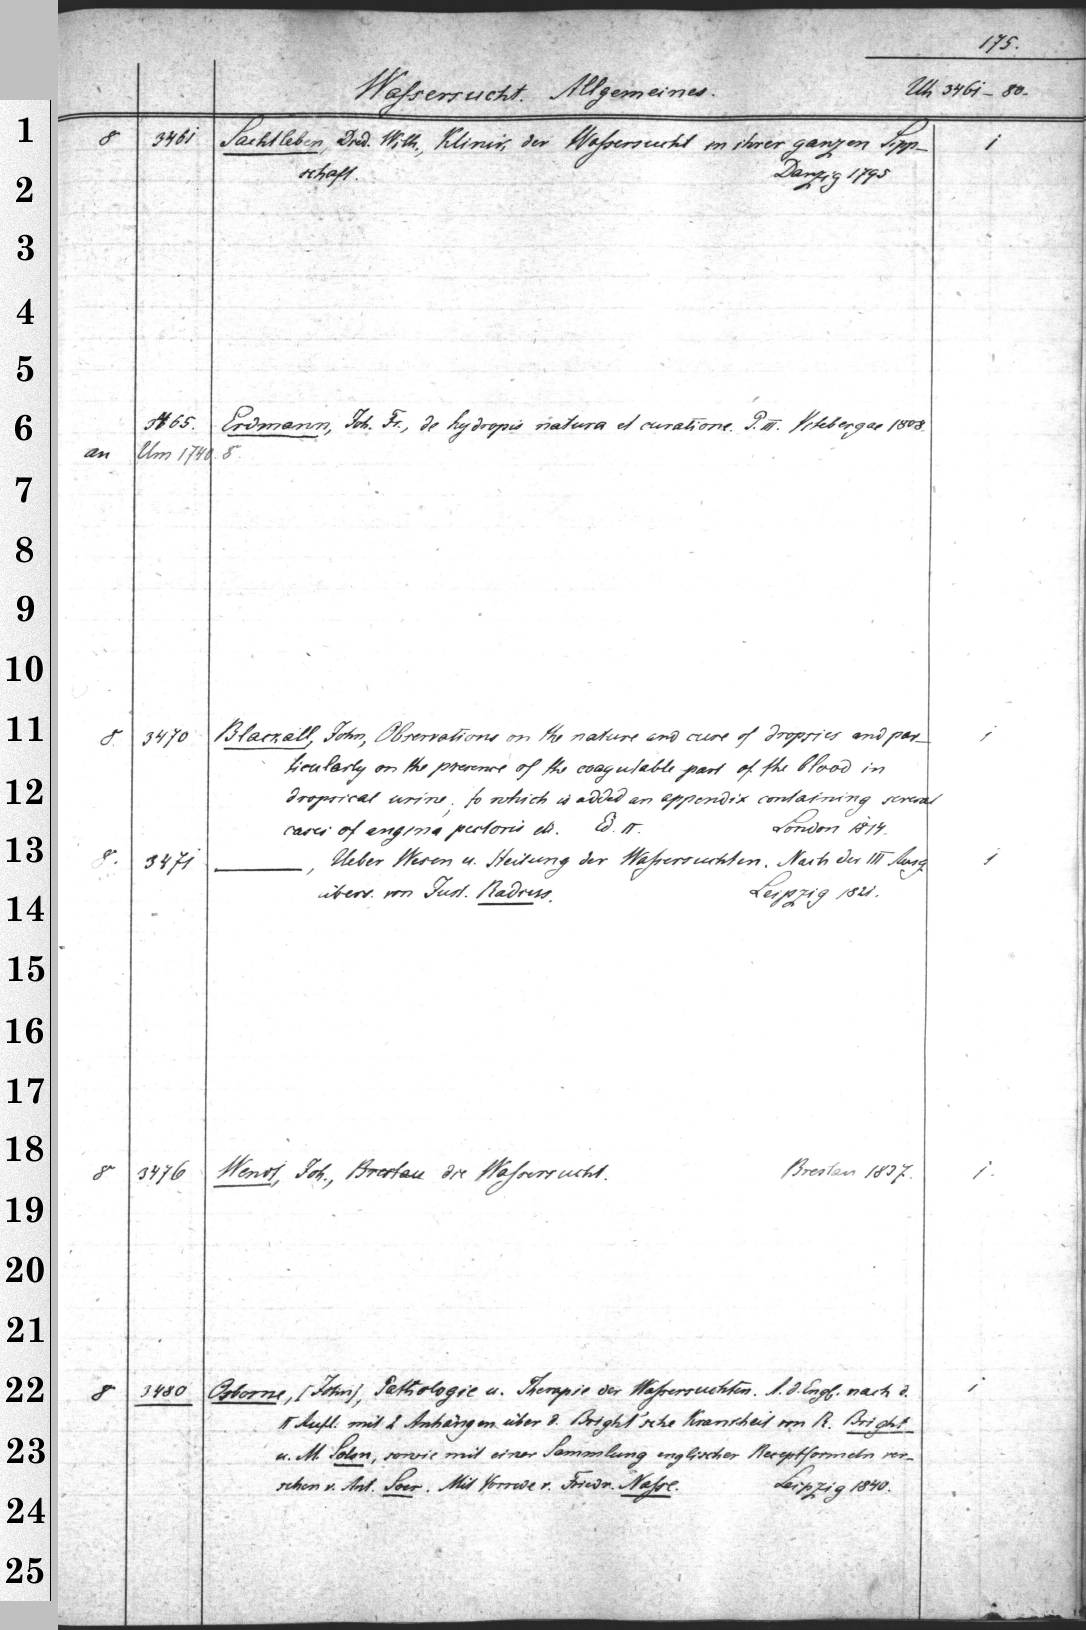 175.
Wassersucht. Allgemeines. Uh 3461-80.
1
8 3461 Sachtleben, Dred. Wilh., Klinik der Wassersucht in ihrer ganzen Sipp-
schaft. Danzig 1795
2
3
4
5
6
3465. Erdmann, Joh. Fr., de hydropis natura et curatione. P. III. Vitebergae 1808.
an Um 1740. 8.
7
8
9
10
11
8. 3470 Blackall, John, Observations on the nature and cure of dropsies and par-
ticularly on the presence of the coagulable part of the blood in
12
dropsical urine; to which is added an appendix containing several
cases of angina pectoris etc. Ed. II. London 1814.
13
8. 3471 ———, Ueber Wesen u. Heilung der Wassersuchten. Nach der III Ausg
übers. von Just. Radius. Leipzig 1821.
14
15
16
17
18
8 3476 Wendt, Joh., Breslau die Wassersucht. Breslau 1837.
19
20
21
22
8 3480 Osborne, [John], Pathologie u. Therapie der Wassersuchten. A. d. Engl. nach d.
II Aufl. mit 2 Anhängen über d. Bright'sche Krankheit von R. Bright
23
u. M. Solon, sowie mit einer Sammlung englischer Receptformeln ver-
sehen v. Ant. Soer. Mit Vorrede v. Friedr. Nasse. Leipzig 1840.
24
25